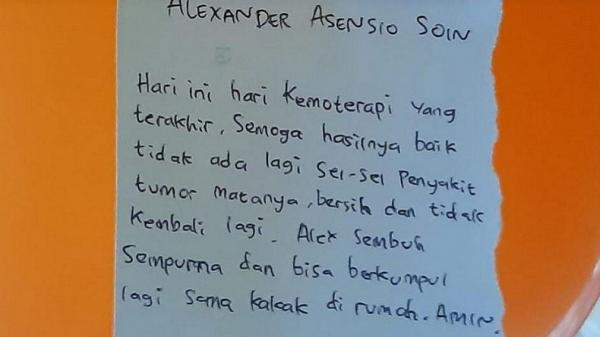 ALEXANDER ASENSIO SOIN
Hari ini hari Kemoterapi yang
terakhir, Semoga hasilnya baik
tidak ada lagi Sel-sel Penyakit
tumor matanya, bersih dan tidak
Kembali lagi. Alex Sembuh
Sempurna dan bisa berkumpul
lagi sama kakak di rumah. AMIN.